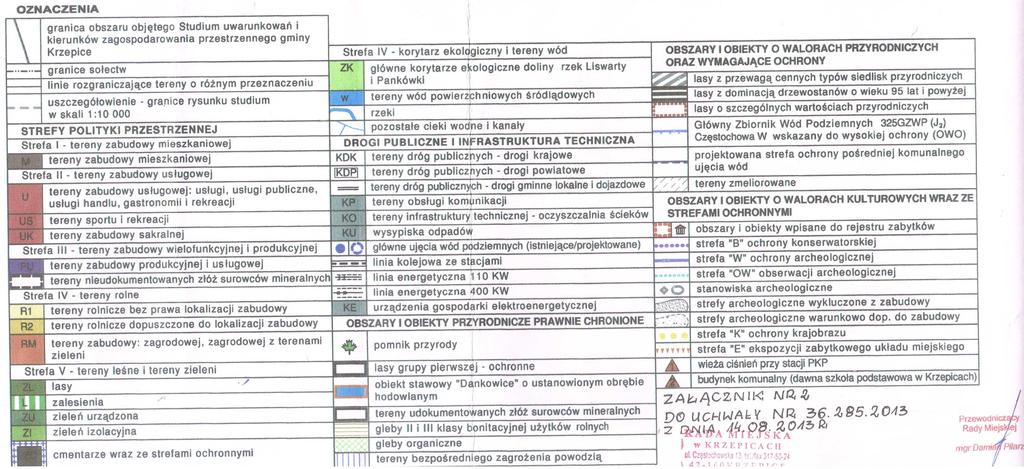 OZNACZENIA
granica obszaru objętego Studium uwarunkowań i
kierunków zagospodarowania przestrzennego gminy
Krzepice
granice sołectw
linie rozgraniczające tereny o różnym przeznaczeniu
uszczegółowienie - granice rysunku studium
w skali 1:10 000
STREFY POLITYKI PRZESTRZENNEJ
Strefa I - tereny zabudowy mieszkaniowej
M tereny zabudowy mieszkaniowej
Strefa II - tereny zabudowy usługowej
U tereny zabudowy usługowej: usługi, usługi publiczne,
usługi handlu, gastronomii i rekreacji
US tereny sportu i rekreacji
UK tereny zabudowy sakralnej
Strefa III - tereny zabudowy wielofunkcyjnej i produkcyjnej
PU tereny zabudowy produkcyjnej i usługowej
tereny nieudokumentowanych złóż surowców mineralnych
Strefa IV - tereny rolne
R1 tereny rolnicze bez prawa lokalizacji zabudowy
R2 tereny rolnicze dopuszczone do lokalizacji zabudowy
RM tereny zabudowy: zagrodowej, zagrodowej z terenami
zieleni
Strefa V - tereny leśne i tereny zieleni
ZL lasy
zalesienia
ZU zieleń urządzona
ZI zieleń izolacyjna
cmentarze wraz ze strefami ochronnymi
Strefa IV - korytarz ekologiczny i tereny wód
ZK główne korytarze ekologiczne doliny rzek Liswarty
i Pankówki
W tereny wód powierzchniowych śródlądowych
rzeki
pozostałe cieki wodne i kanały
DROGI PUBLICZNE I INFRASTRUKTURA TECHNICZNA
KDK tereny dróg publicznych - drogi krajowe
KDP tereny dróg publicznych - drogi powiatowe
tereny dróg publicznych - drogi gminne lokalne i dojazdowe
KP tereny obsługi komunikacji
KO tereny infrastruktury technicznej - oczyszczalnia ścieków
KU wysypiska odpadów
główne ujęcia wód podziemnych (istniejące/projektowane)
linia kolejowa ze stacjami
linia energetyczna 110 KW
linia energetyczna 400 KW
KE urządzenia gospodarki elektroenergetycznej
OBSZARY I OBIEKTY PRZYRODNICZE PRAWNIE CHRONIONE
pomnik przyrody
lasy grupy pierwszej - ochronne
obiekt stawowy "Dankowice" o ustanowionym obrębie
hodowlanym
tereny udokumentowanych złóż surowców mineralnych
gleby II i III klasy bonitacyjnej użytków rolnych
gleby organiczne
tereny bezpośredniego zagrożenia powodzią
OBSZARY I OBIEKTY O WALORACH PRZYRODNICZYCH
ORAZ WYMAGAJĄCE OCHRONY
lasy z przewagą cennych typów siedlisk przyrodniczych
lasy z dominacją drzewostanów o wieku 95 lat i powyżej
lasy o szczególnych wartościach przyrodniczych
Główny Zbiornik Wód Podziemnych 325GZWP (J₂)
Częstochowa W wskazany do wysokiej ochrony (OWO)
projektowana strefa ochrony pośredniej komunalnego
ujęcia wód
tereny zmeliorowane
OBSZARY I OBIEKTY O WALORACH KULTUROWYCH WRAZ ZE
STREFAMI OCHRONNYMI
obszary i obiekty wpisane do rejestru zabytków
strefa "B" ochrony konserwatorskiej
strefa "W" ochrony archeologicznej
strefa "OW" obserwacji archeologicznej
stanowiska archeologiczne
strefy archeologiczne wykluczone z zabudowy
strefy archeologiczne warunkowo dop. do zabudowy
strefa "K" ochrony krajobrazu
strefa "E" ekspozycji zabytkowego układu miejskiego
wieża ciśnień przy stacji PKP
budynek komunalny (dawna szkoła podstawowa w Krzepicach)
ZAŁĄCZNIK NR 2
DO UCHWAŁY NR 36.285.2013
Z DNIA 14.08.2013 R
RADA MIEJSKA
w KRZEPICACH
ul. Częstochowska 13
Przewodniczący
Rady Miejskiej
mgr Damian Pilarz